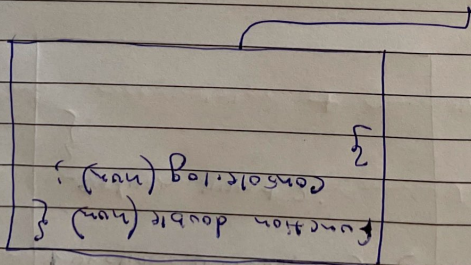 function double (num) {
console.log (num) ;
}